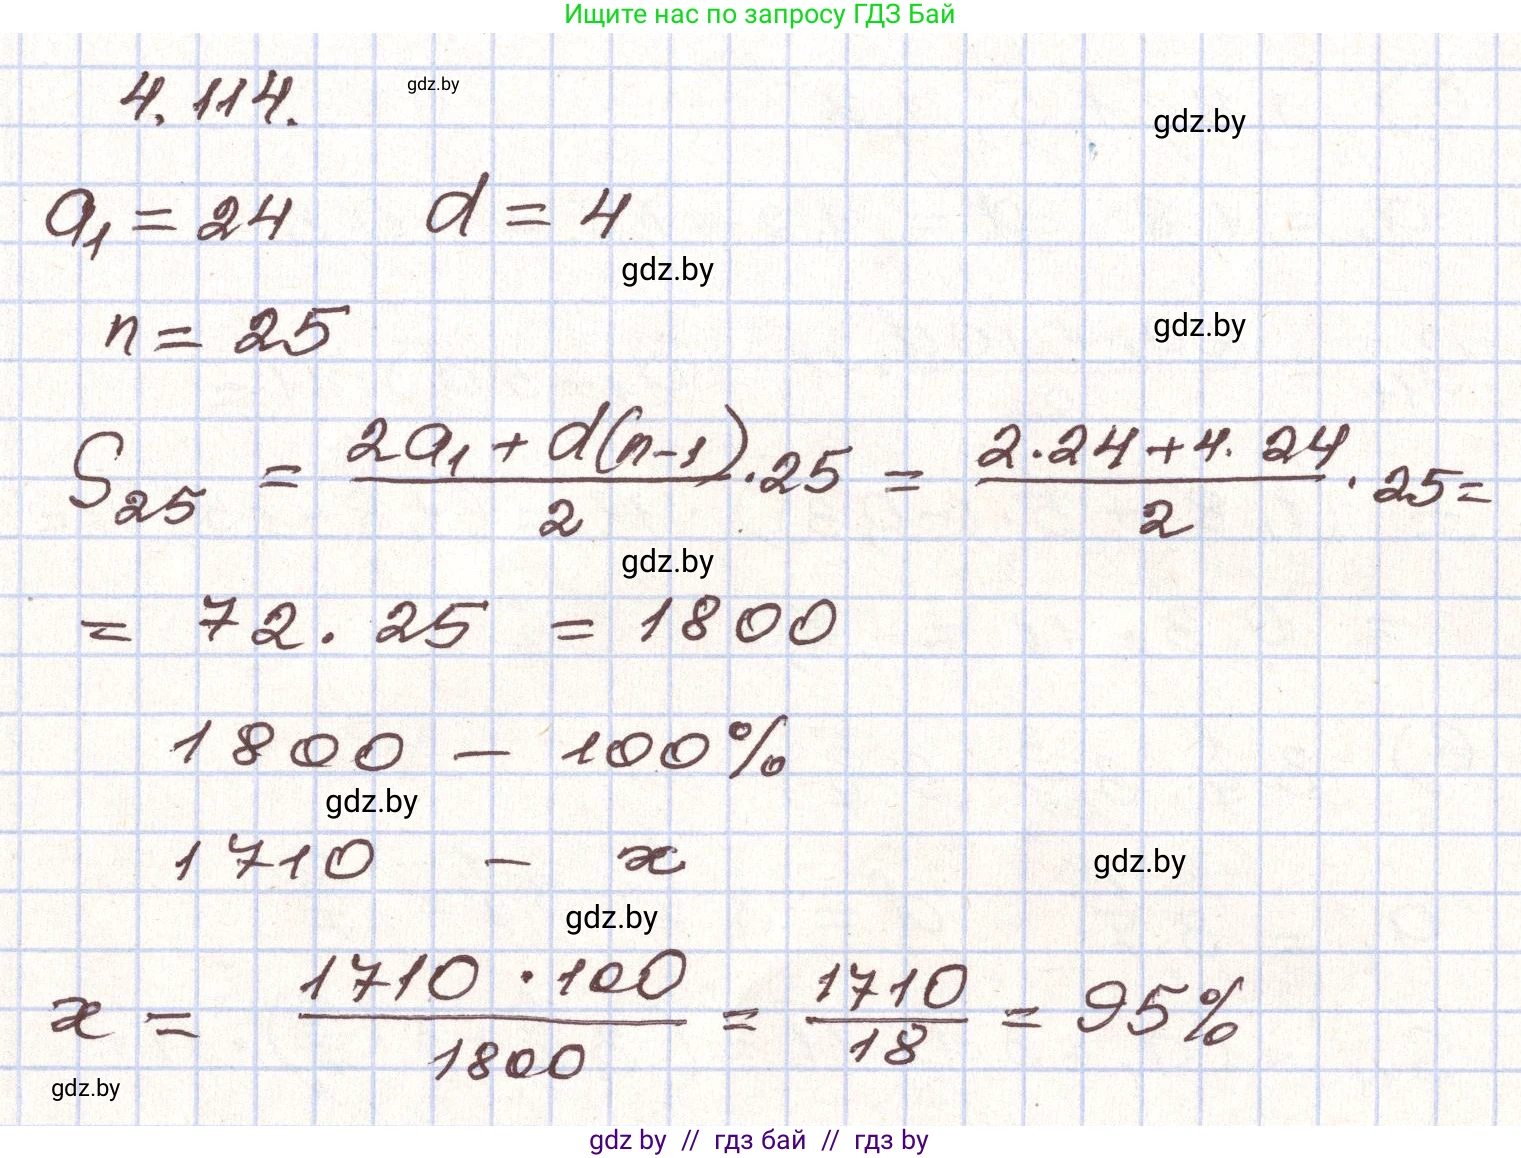 Ищите нас по запросу ГДЗ Бай
4.114.
gdz.by
gdz.by
a₁ = 24 d = 4
gdz.by
n = 25
gdz.by
S₂₅ = (2a₁ + d(n-1))/2 · 25 = (2·24+4·24)/2 · 25 =
gdz.by
= 72 · 25 = 1800
1800 — 100%
gdz.by
1710 — x
gdz.by
gdz.by
x = (1710 · 100)/1800 = 1710/18 = 95%
gdz.by
gdz by // гдз бай // гдз by